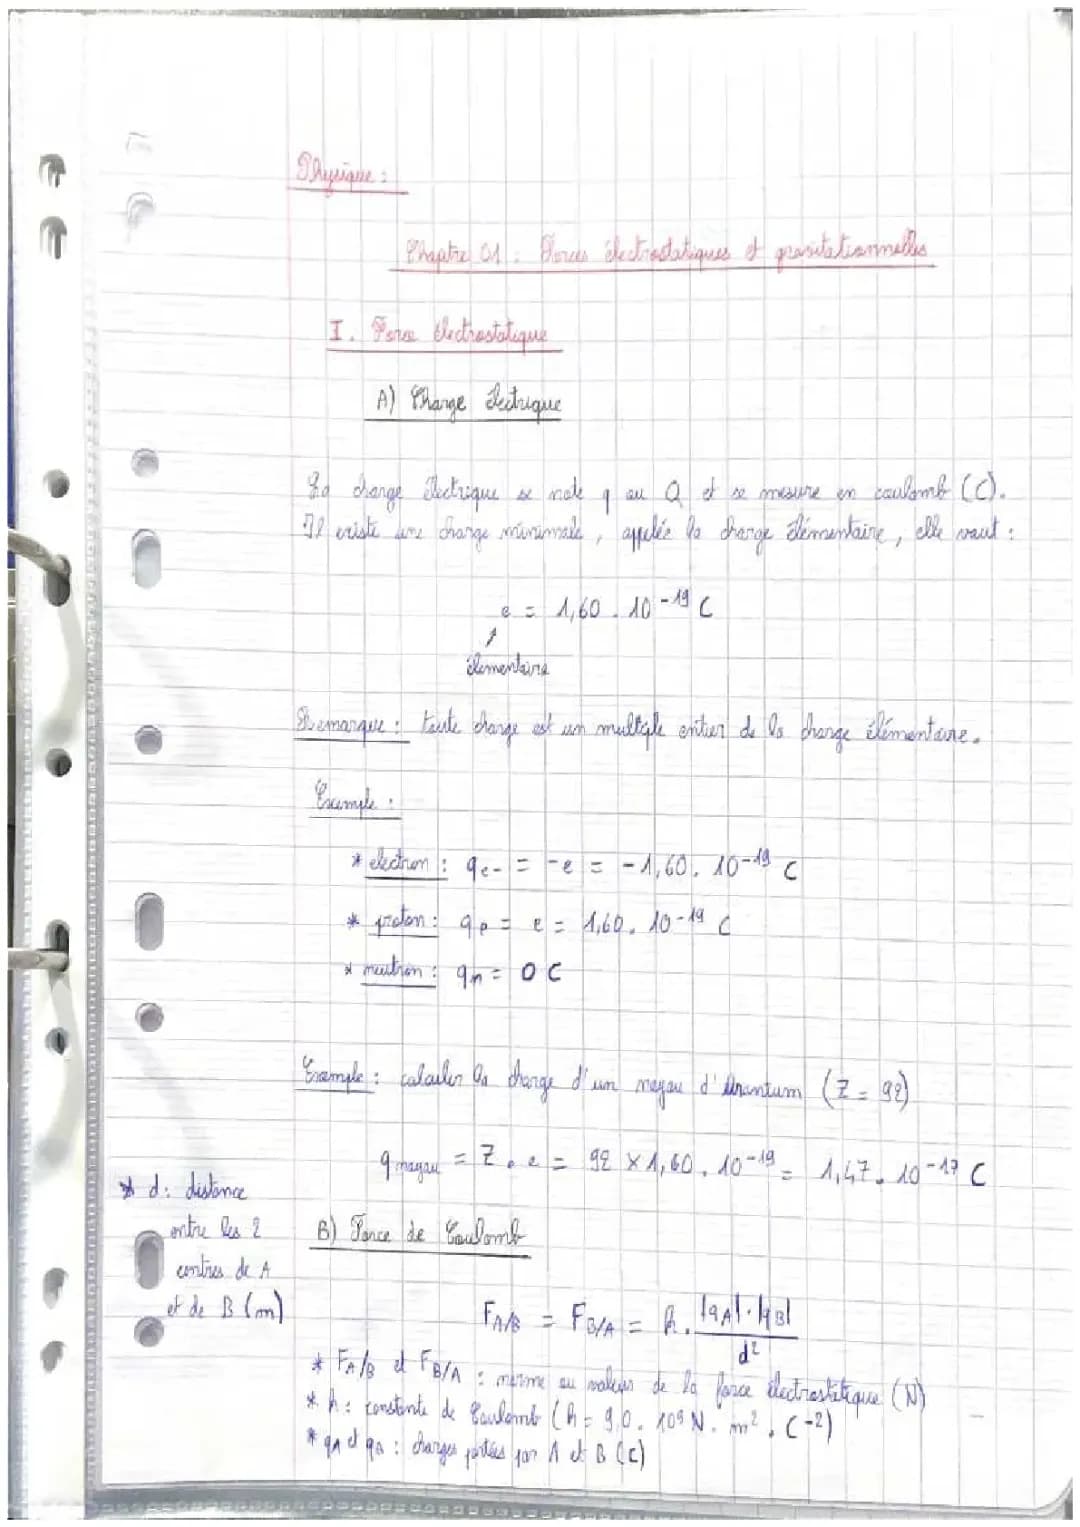 Physique :
Chapitre 01 : Forces électrostatiques et gravitationnelles
I. Force électrostatique
A) Charge électrique
La charge électrique se note q ou Q et se mesure en coulomb (C).
Il existe une charge minimale, appelée la charge élémentaire, elle vaut :
e = 1,60 . 10^-19 C
élementaire
Remarque : toute charge est un multiple entier de la charge élémentaire.
Exemple :
* electron : qe- = -e = -1,60 . 10^-19 C
* proton : qp = e = 1,60 . 10^-19 C
* neutron : qn = 0 C
Exemple : calculer la charge d'un noyau d'Uranium (Z = 92)
q noyau = Z . e = 92 × 1,60 . 10^-19 = 1,47 . 10^-17 C
* d : distance
entre les 2
centres de A
et de B (m)
B) Force de Coulomb
F A/B = F B/A = k . |qA| . |qB| / d²
* F A/B et F B/A : norme ou valeur de la force électrostatique (N)
* k : constante de Coulomb (k = 9,0 . 10^9 N . m² . C^-2)
* qA et qB : charges portées par A et B (C)